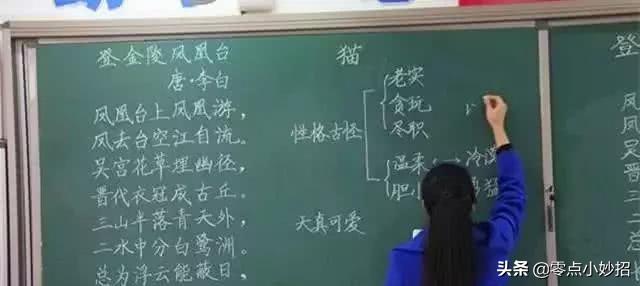 登金陵凤凰台
唐·李白
凤凰台上凤凰游，
凤去台空江自流。
吴宫花草埋幽径，
晋代衣冠成古丘。
三山半落青天外，
二水中分白鹭洲。
总为浮云能蔽日，
猫
性格古怪
老实
贪玩
尽职
温柔
胆小
天真可爱
登
头条 @零点小妙招